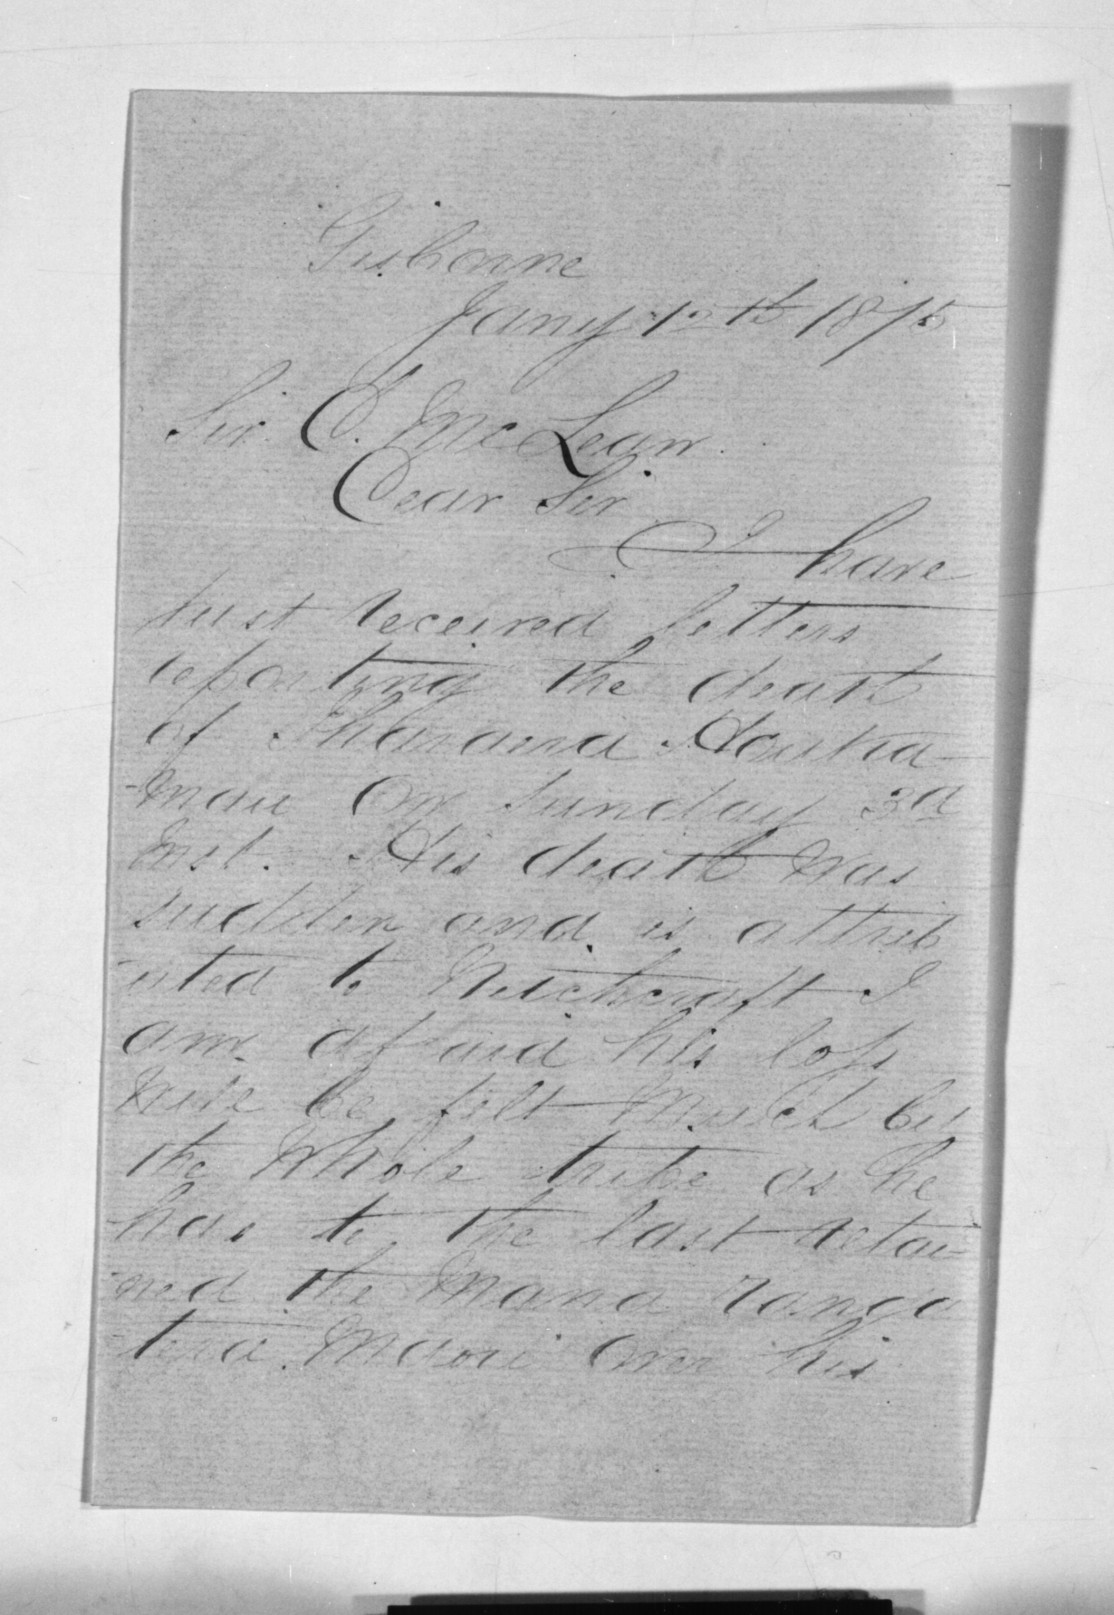 Gisborne
Jany 12th 1875
Sir D. McLean.
Dear Sir
I have
just received letters
reporting the death
of Iharaira Houka-
-mau on Sunday 3d
Inst. His death was
sudden and is attrib
-uted to Witchcraft I
am afraid his loss
will be felt much by
the whole tribe as he
has to the last retai-
-ned the Mana ranga
-tira Maori over his